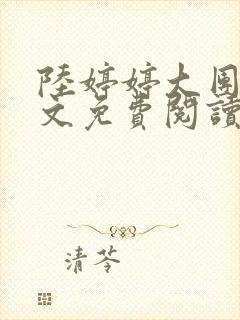 陸婷婷大團
文免費閱讀
清苓